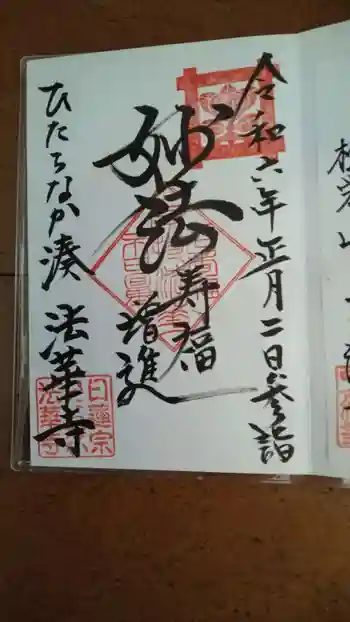 令和六年正月二日参詣
妙法
寿福
増進
ひたちなか湊 法華寺
日蓮宗
法華寺